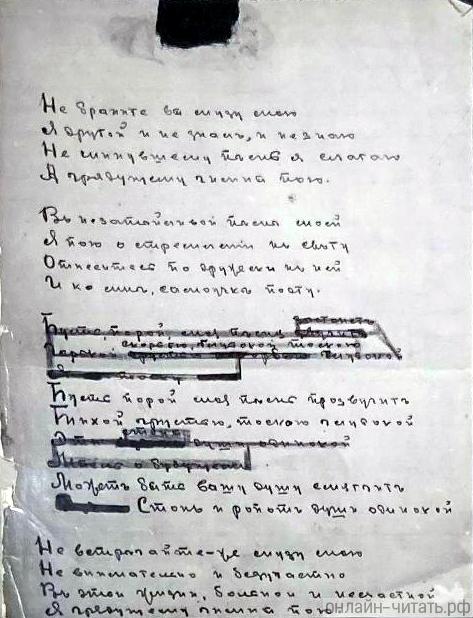 Не браните вы музу мою
Я другой и не знал, и не знаю
Не минувшему песнь я слагаю
А грядущему гимны пою.
Въ незатѣйливой песнѣ моей
Я пою о стремленіи къ свѣту
Отнеситесь по дружески къ ней
И ко мнѣ, самоучкѣ поэту.
застонетъ
Пусть порой моя песнь
скорбью, глубокой тоскою
глубокой
Пусть порой моя песнь прозвучитъ
Тихой грустью, тоскою глубокой
души одинокой
Можетъ быть вашу душу смягчитъ
Стонъ и ропотъ души одинокой
Не встречайте-же музу мою
Не внимательно и безучастно
Въ этой жизни, больной и несчастной
Я грядущему гимны пою
онлайн-читать.рф